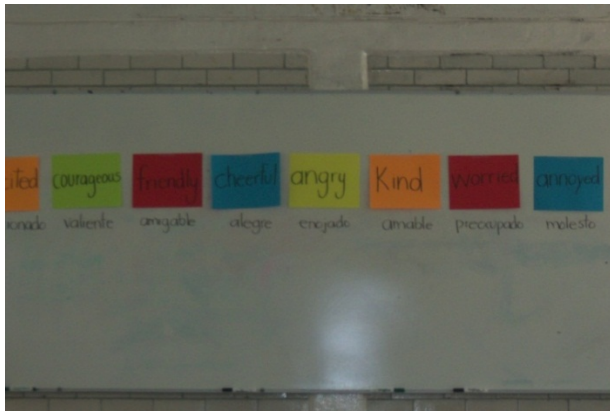 cited courageous friendly cheerful angry Kind worried annoyed
ionado valiente amigable alegre enojado amable preocupado molesto